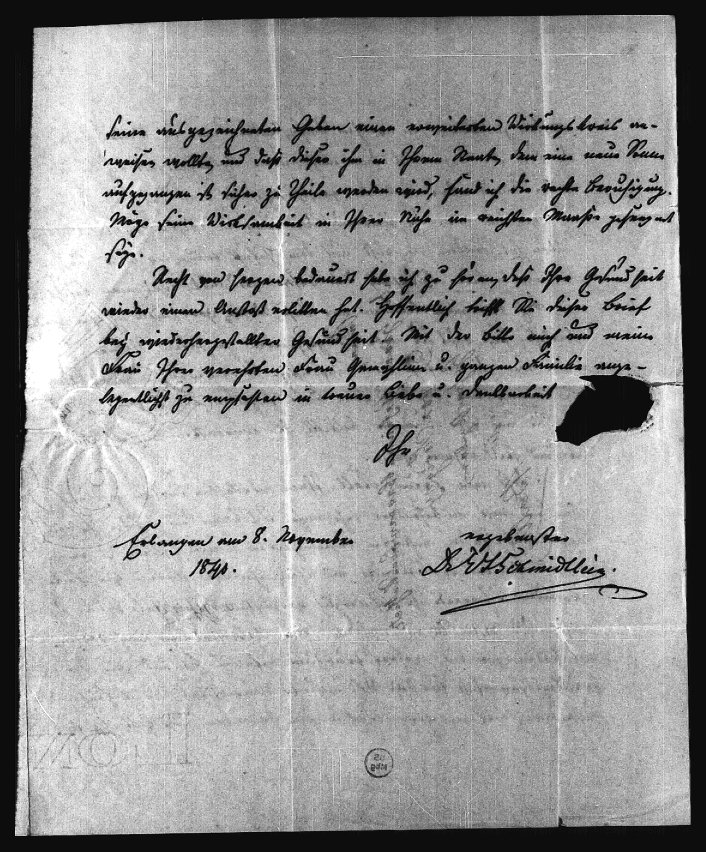 seine ausgezeichneten Gaben einen erweiterten Wirkungskreis an-
weisen wollte, und daß dieser ihm in Ihrem Staate, dem eine neue Sonne
aufgegangen ist sicher zu Theile werden wird, fand ich die rechte Beruhigung.
Möge seine Wirksamkeit in Ihrer Nähe im reichsten Maaße gesegnet
seyn.
Recht von Herzen bedauert habe ich zu hören, daß Ihre Gesundheit
wieder einen Anstoß erlitten hat. Hoffentlich trifft Sie dieser Brief
bey wiederhergestellter Gesundheit. Mit der Bitte mich und meine
Frau Ihrer verehrten Frau Gemahlinn u. ganzen Familie ange-
legentlichst zu empfehlen in treuer Liebe u. Dankbarkeit
Ihr
Erlangen am 8. November ergebenster
184 Schmidtlein.